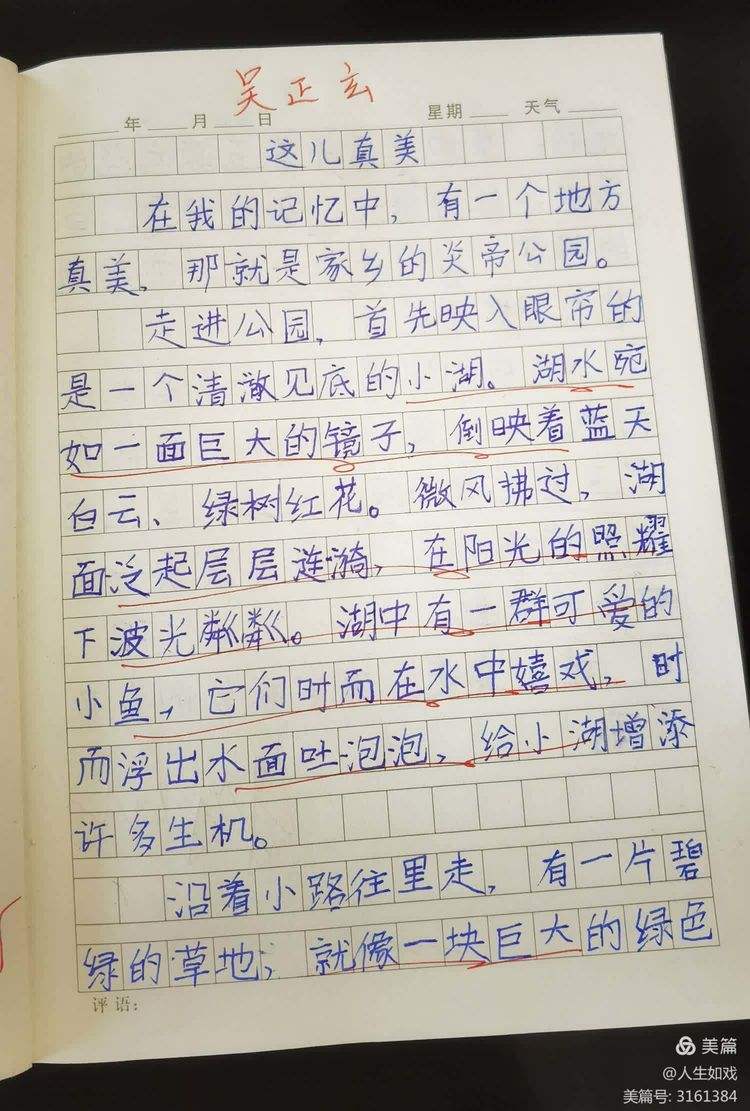 吴正玄
年 月 日 星期 天气
这儿真美
在我的记忆中，有一个地方
真美，那就是家乡的炎帝公园。
走进公园，首先映入眼帘的
是一个清澈见底的小湖。湖水宛
如一面巨大的镜子，倒映着蓝天
白云、绿树红花。微风拂过，湖
面泛起层层涟漪，在阳光的照耀
下波光粼粼。湖中有一群可爱的
小鱼，它们时而在水中嬉戏，时
而浮出水面吐泡泡，给小湖增添
许多生机。
沿着小路往里走，有一片碧
绿的草地，就像一块巨大的绿色
评语：
美篇
@人生如戏
美篇号: 3161384